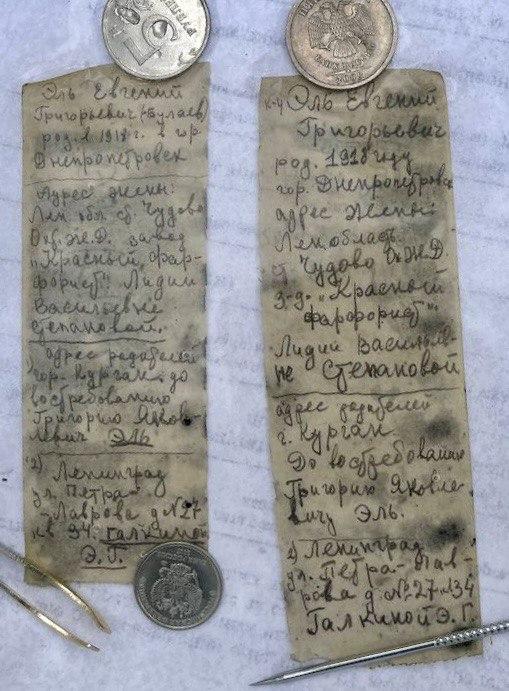 Эль Евгений
Григорьевич (Булаев)
род. в 1918 г. в гор
Днепропетровск
Адрес жены:
Лен. обл. ст. Чудово
Окт. Ж.Д. завод
"Красный фар-
форист". Лидии
Васильевне
Степановой.
1) адрес родителей
гор. Курган. до
востребованию
Григорию Яков-
левич Эль
2) Ленинград
ул. Петра-
Лаврова д №27
кв 34. Галкиной
Э. Г.
к-ц Эль Евгений
Григорьевич
род. 1918 году
гор. Днепропетровск
адрес жены:
Лен. область
Чудово Ж.Д
з-д. "Красный
фарфорист".
Лидии Василье-
не Степановой
адрес родителей
г. Курган
До востребования
Григорию Яковле-
вичу Эль.
2) Ленинград
ул. Петра-Лав-
рова д. №27-34
Галкиной Э. Г.
5
РУБЛЕЙ